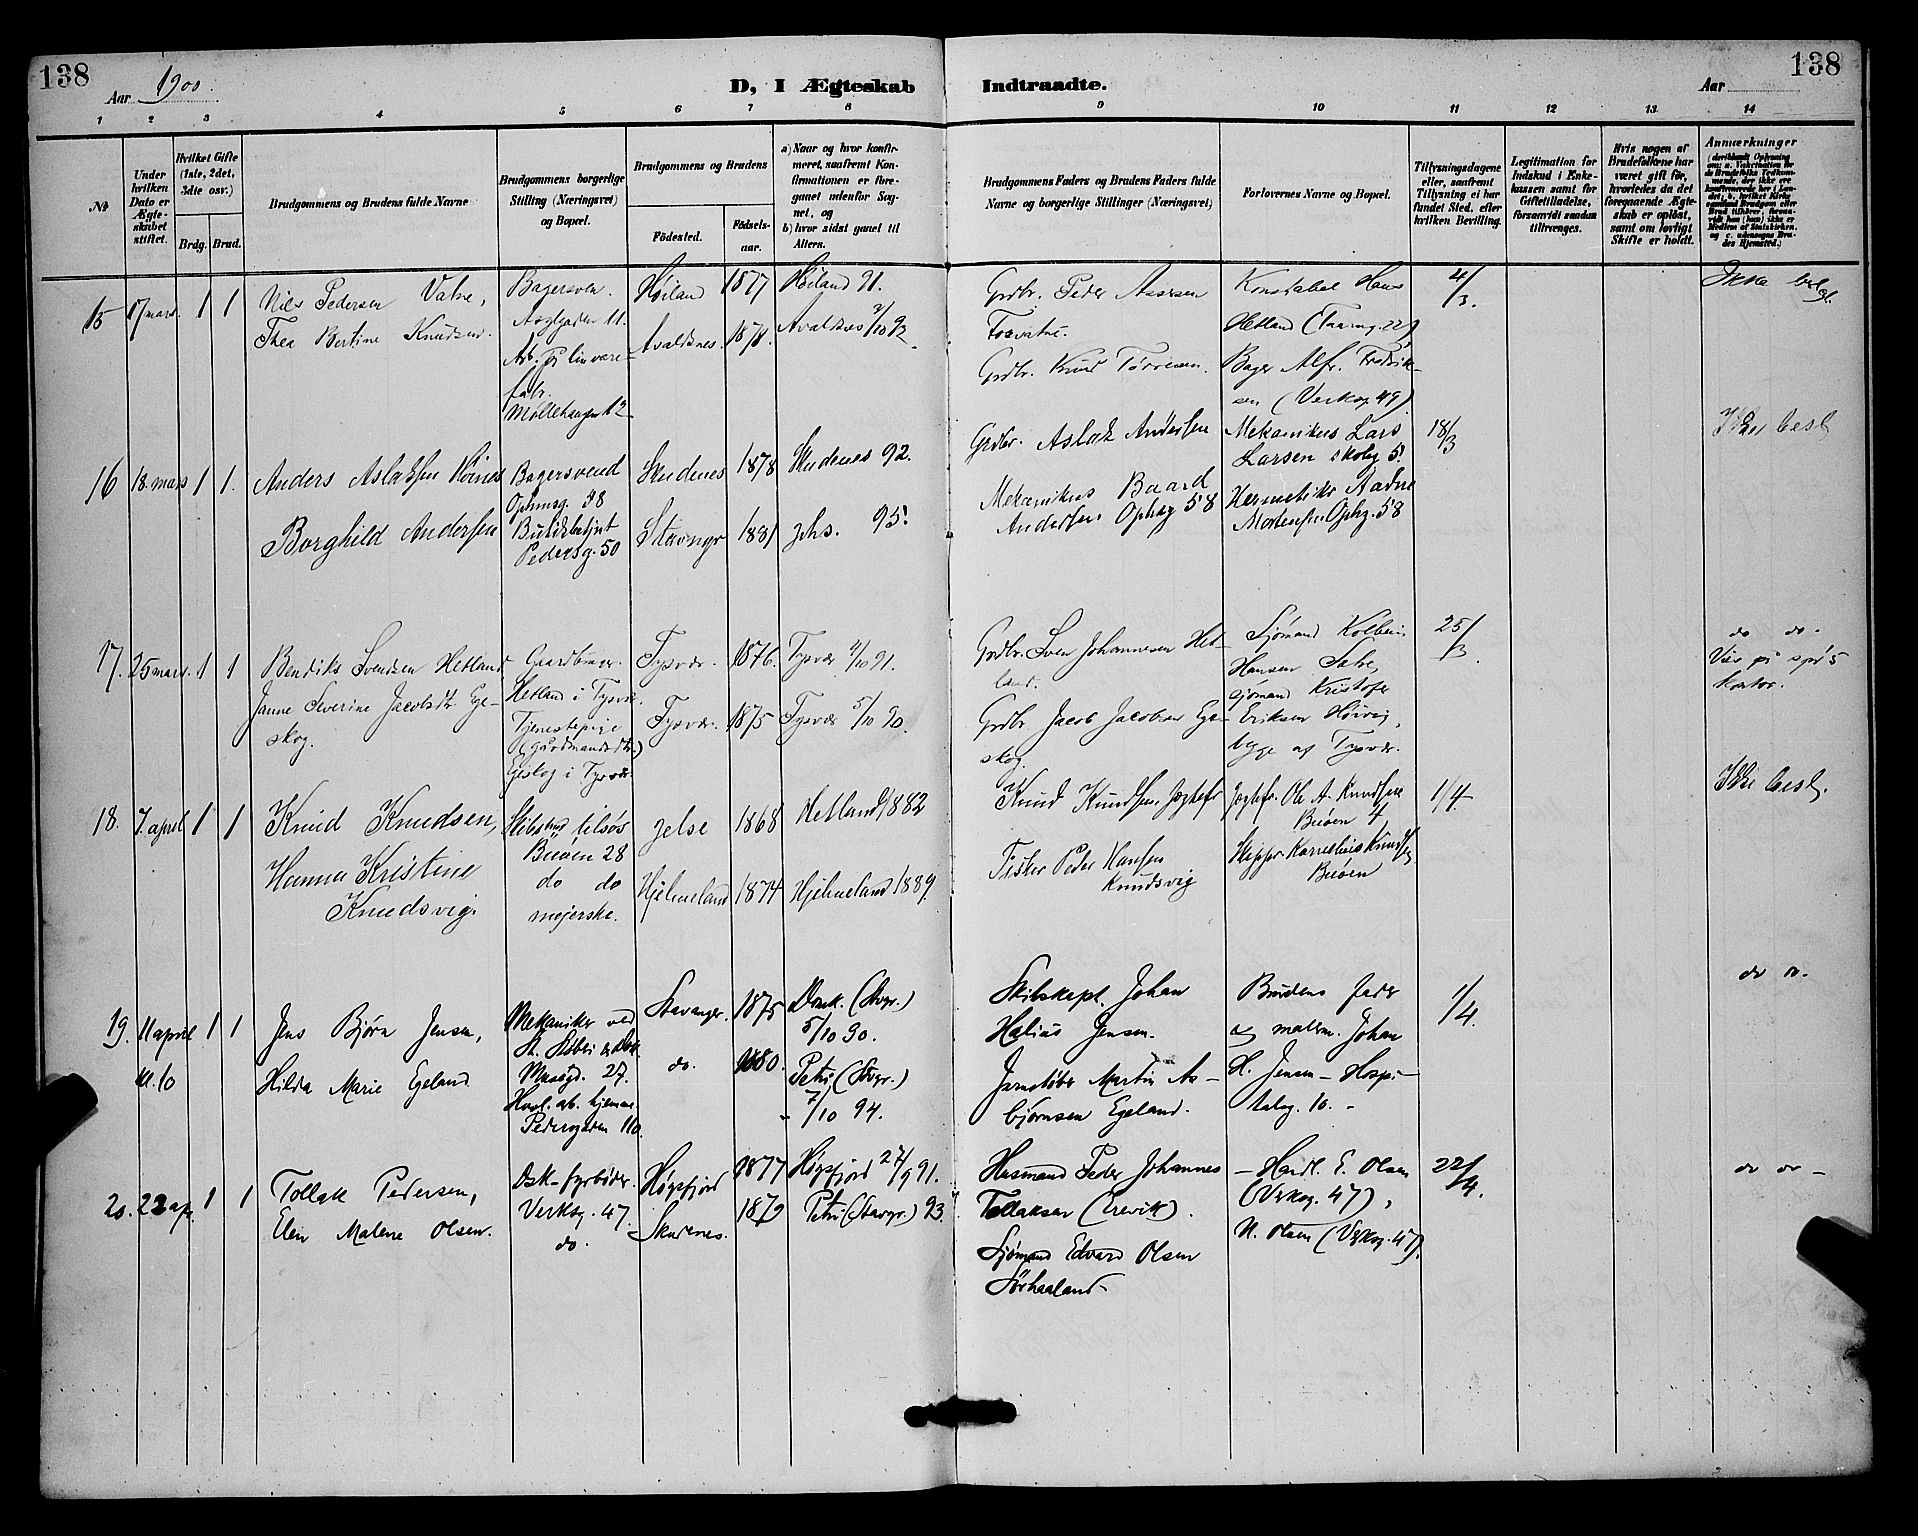 138
Aar 1900.
D, I Ægteskab
Indtraadte.
Aar
138
1 2 3 4 5 6 7 8 9 10 11 12 13 14
№
Under hvilken Dato er Ægteskabet stiftet.
Hvilket Gifte (1ste, 2det, 3die osv.)
Brdg. Brud.
Brudgommens og Brudens fulde Navne
Brudgommens borgerlige Stilling (Næringsvei) og Bopæl.
Brudgommens og Brudens
Födested. Födselsaar.
a) Naar og hvor konfirmeret, saafremt Konfirmationen er foregaaet udenfor Sognet, og
b) hvor sidst gaaet til Altern.
Brudgommens Faders og Brudens Faders fulde Navne og borgerlige Stillinger (Næringsvei)
Forlovernes Navne og Bopæl.
Tillysningsdagene eller, saafremt Tillysning ei har fundet Sted, efter hvilken Bevilling.
Legitimation for Indskud i Enkekassen samt for Giftetilladelse, forsaavidt saadan tiltrænges.
Hvis nogen af Brudefolkene har været gift før, hvorledes da det foregaaende Ægteskab er opløst, samt om lovligt Skifte er holdt.
Anmærkninger
15 17 mars 1 1
Nils Pedersen Vatne,
Thea Bertine Knudsen.
Bagersven.
Asylgaden 11.
Arb. på linvare-
fabr.
Møllehaugen 12
Høiland 1877 Høiland 91.
Avaldsnes 1878. Avaldsnes 2/10 92.
Grdbr. Peder Assersen
Fosvatne.
Grdbr. Knud Tørresen.
Konstabel Hans
Hetland (Taarng. 22)
Bager Alfr. Fredrik-
sen (Verksg. 49).
4/3.
Ikke besl.
16 18. mars 1 1.
Anders Aslaksen Høines
Borghild Andersen
Bagersvend
Ophmsg. 58
Pedersg. 50
Skudenes 1878 Skudenes 92.
Stavngr 1881 Johs. 95.
Grdbr. Aslack Andersen
Mekanikus Baard
Andersen Ophsg 58
Mekanikus Lars
Larsen skoleg 5.
Hermetikr Aadne
Mortensen Ophg. 58
18/3
Ikke besl
17. 25 mars. 1 1
Bendiks Svendsen Hetland
Janne Severine Jacobsdtr Ege-
skog.
Gaardbruer.
Hetland i Tysvær.
Tjenestepige
(gaardmandsdtr.)
Egeskog i Tysvær
Tysvær. 1876. Tysvær 4/10 91.
Tysvær. 1875 Tysvær 5/10 90.
Grdbr. Sven Johannesen Het-
land.
Grdbr Jacob Jacobsen Ege-
skog.
Sjömand Kolbein
Hansen
Sjömand Kristofer
Eriksen Høivig,
begge af Tysvær.
25/3.
do do.
Vies på spr's
kontor.
18. 7. april 1 1
Knud Knudsen,
Hanna Kristine
Knudsvig.
Skibstmd tilsøs
Buøen 28
do do
mejerske.
Jelse 1868 Hetland 1882
Hjelmeland 1874 Hjelmeland 1889.
Knud Knudsen, Jægtefr
Fisker Peder Hansen
Knudsvig
Jægtefr. Ole A. Knudsen
Buøen 4
Skipper Kornelius Knudsen
Buøen
1/4.
Ikke besl.
19. 11 april 1 1
kl. 10
Jens Bjørn Jensen,
Hilda Marie Egeland
Mekaniker ved
St. Støberi & Dok
Musegd. 27.
Husl. arb. hjemme
Pedersgaden 110.
Stavanger. 1875 Domk. (Stvgr.)
5/10 90.
do. 1880. Petri (Stvgr.)
7/10 94.
Skibskapt. Johan
Halius Jensen.
Jernstøber Martin As-
björnsen Egeland.
Brudens fader
og malerm. Johan
H. Jensen - Hospi-
talsg. 10.
1/4.
do do.
20. 22 apr. 1 1
Tollak Pedersen,
Elen Malene Olsen.
Dsk-fyrbøder.
Verksg. 47.
do.
Høgsfjord 1877 Høgsfjord 27/9 91.
Skudenes. 1879 Petri (Stavgr.) 93.
Husmand Peder Johannes
Tollaksen (Erevik).
Sjømand Edvard Olsen
Sørhaaland
Handl. E. Olsen
(Verksg. 47),
N. Olsen (Verksg. 47).
22/4.
do do -